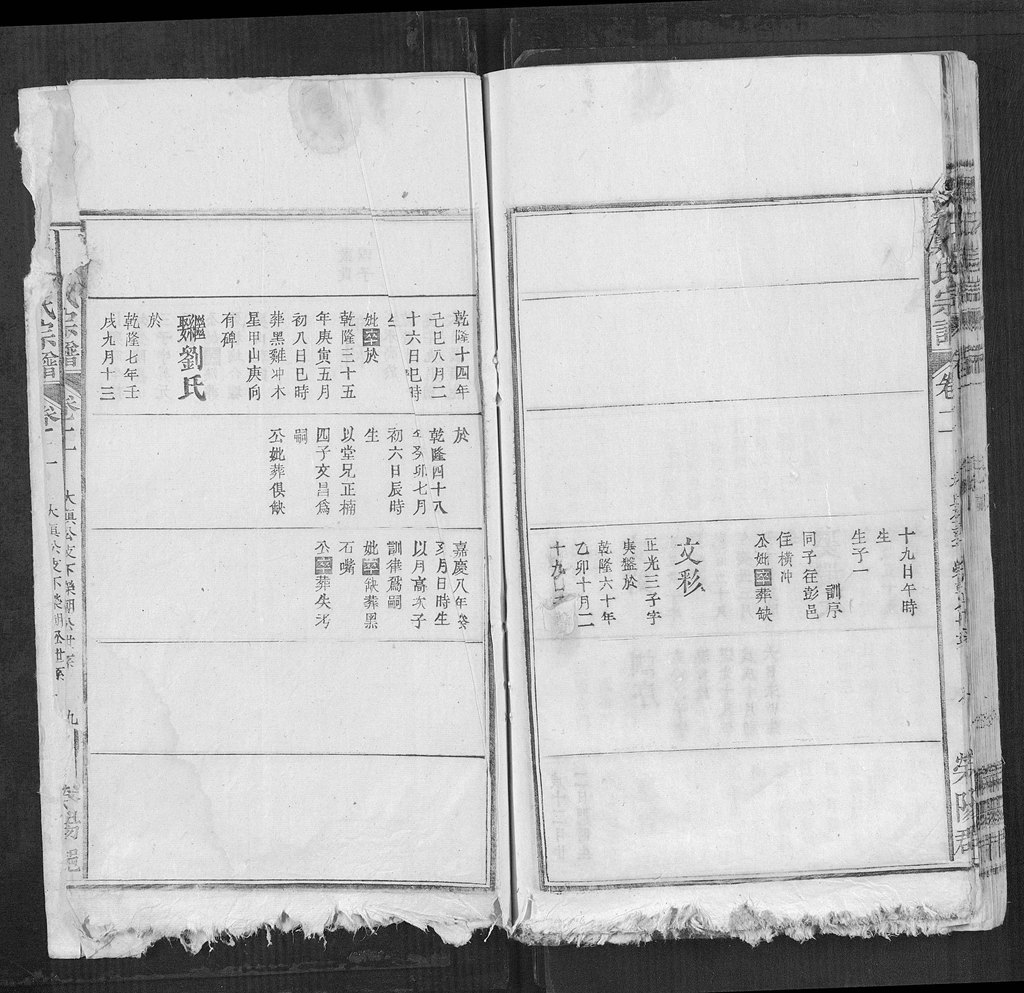 氏宗譜
卷二
十九日午時
生
生子一
訓序
同子在彭邑
住橫冲
公妣卒葬缺
文彩
正光三子字
庚盤於
乾隆六十年
乙卯十月二
十九
乾隆十四年
己巳八月二
十六日巳時
生
妣卒於
乾隆三十五
年庚寅五月
初八日巳時
葬黑雞冲木
星甲山庚向
有碑
繼劉氏
於
乾隆七年壬
戌九月十三
於
乾隆四十八
年癸卯七月
初六日辰時
生
以堂兄正楠
四子文昌為
嗣
公妣葬俱缺
嘉慶八年癸
亥月日時生
以月高次子
訓律為嗣
妣卒缺葬黑
石嘴
公卒葬失考
氏宗譜
卷二
九
氏宗譜
卷二